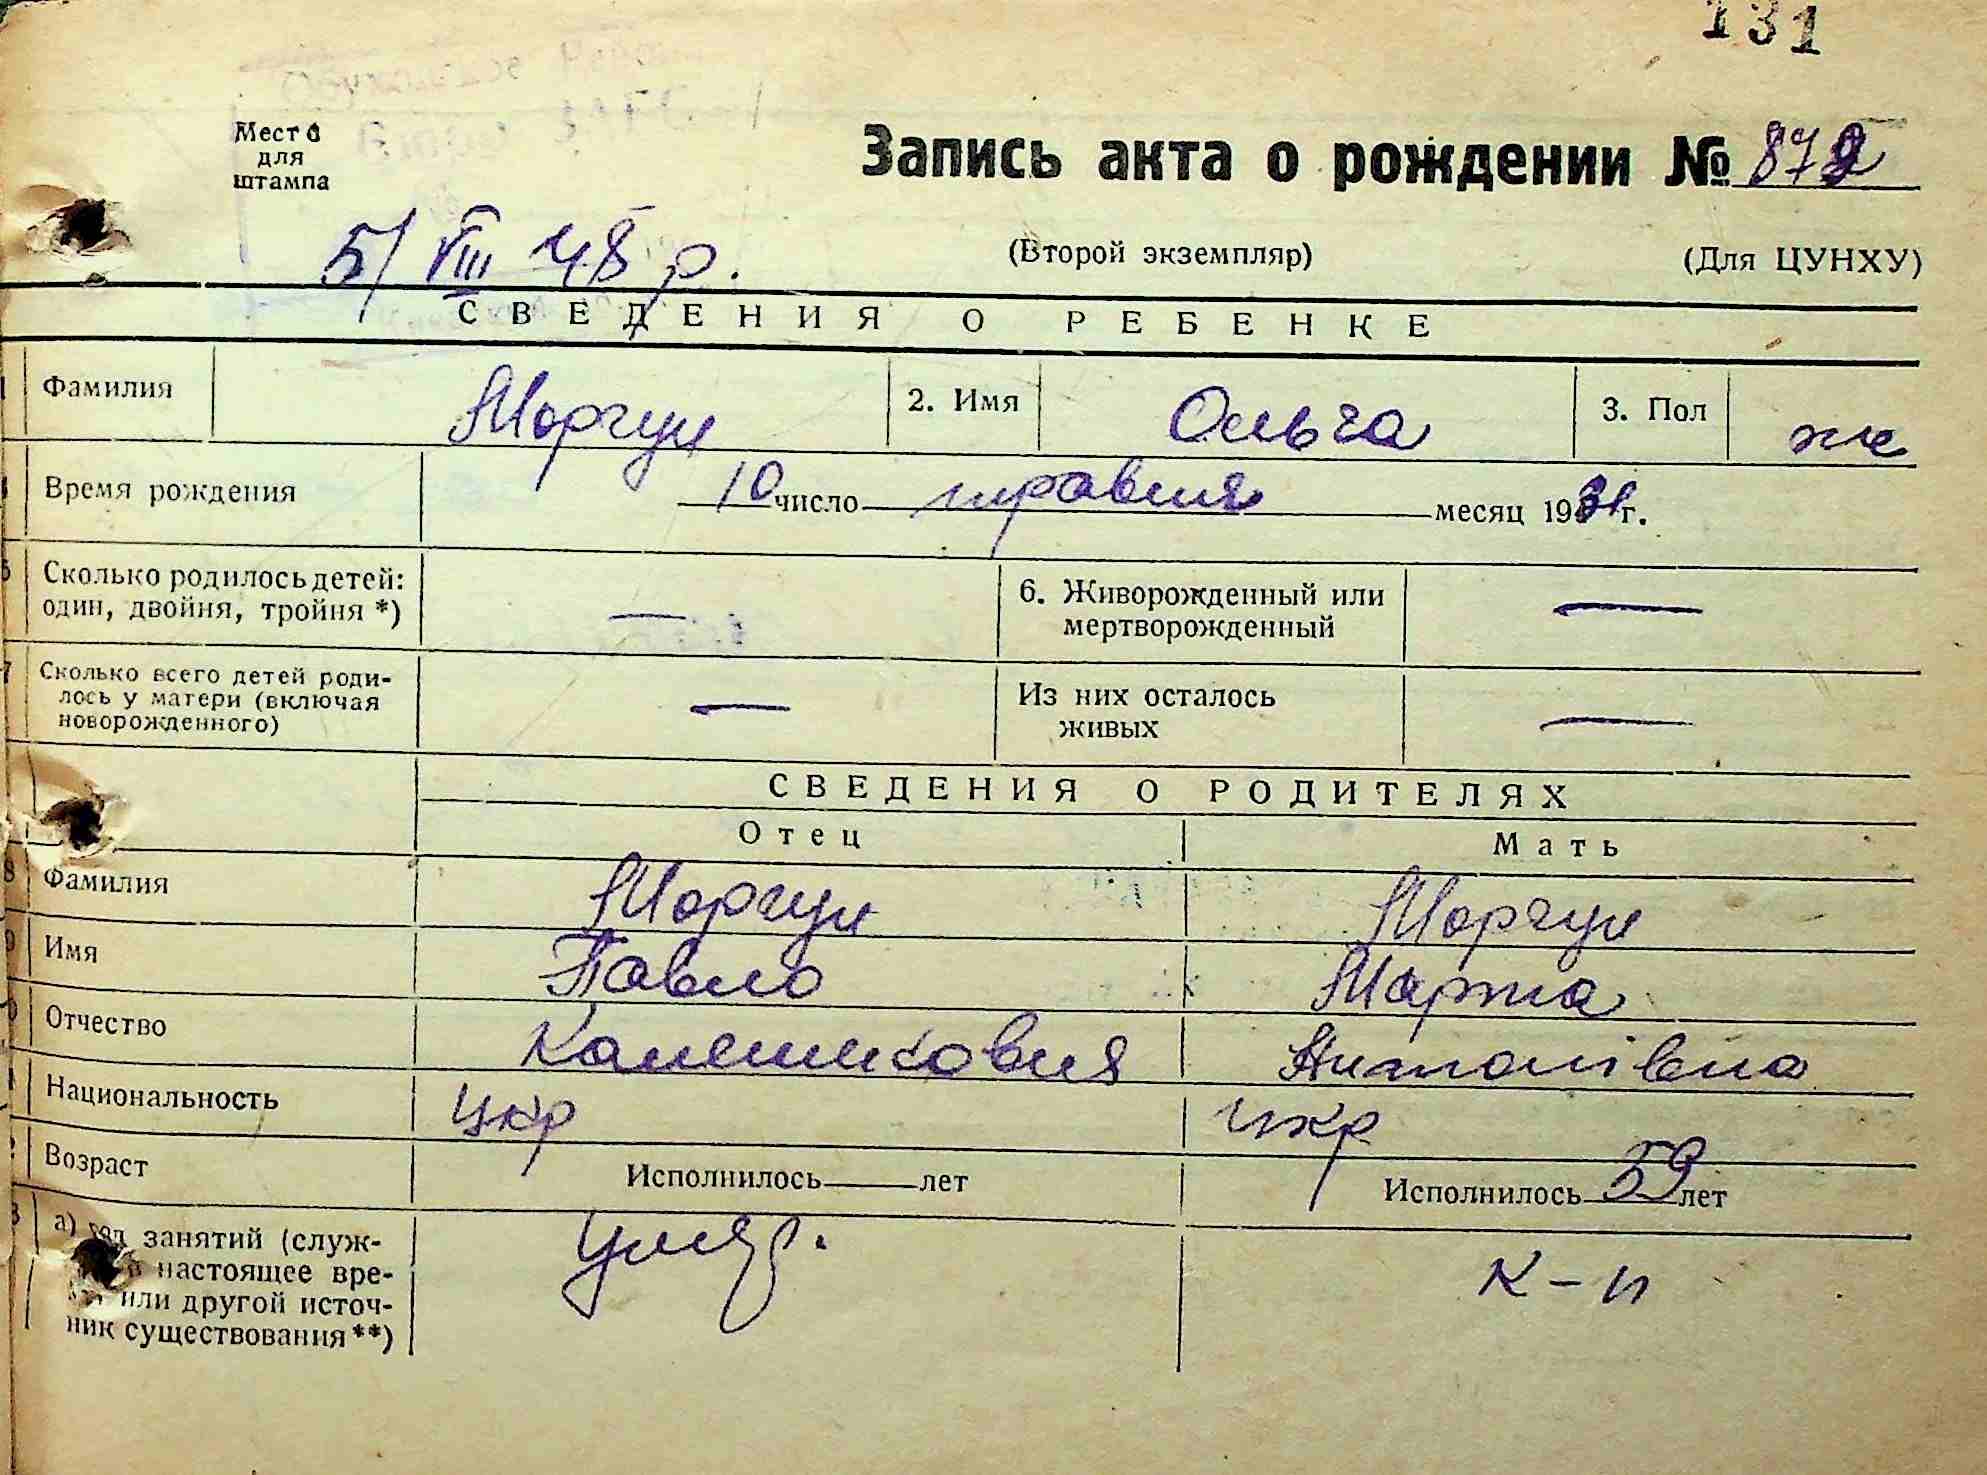 131
Место для штампа
Запись акта о рождении № 872
5/VIII 48 р.
(Второй экземпляр)
(Для ЦУНХУ)
СВЕДЕНИЯ О РЕБЕНКЕ
Фамилия Моргун 2. Имя Ольга 3. Пол ж
Время рождения 10 число травня месяц 1931 г.
5 Сколько родилось детей: один, двойня, тройня *) — 6. Живорожденный или мертворожденный —
7 Сколько всего детей родилось у матери (включая новорожденного) — Из них осталось живых —
СВЕДЕНИЯ О РОДИТЕЛЯХ
Отец Мать
8 Фамилия Моргун Моргун
9 Имя Павло Марта
Отчество
Национальность укр укр
Возраст Исполнилось — лет Исполнилось 59 лет
а) род занятий (служ-
настоящее вре-
или другой источ-
ник существования **)
умер. к-п